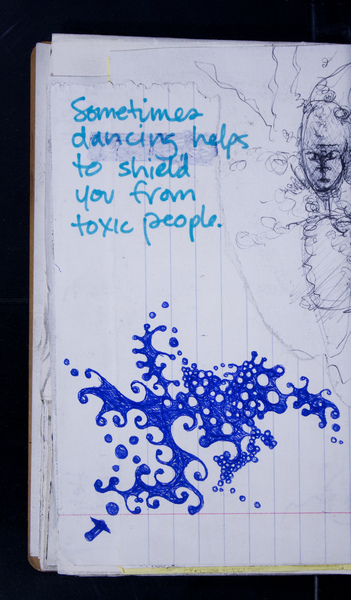 Sometimes
dancing helps
to shield
you from
toxic people.